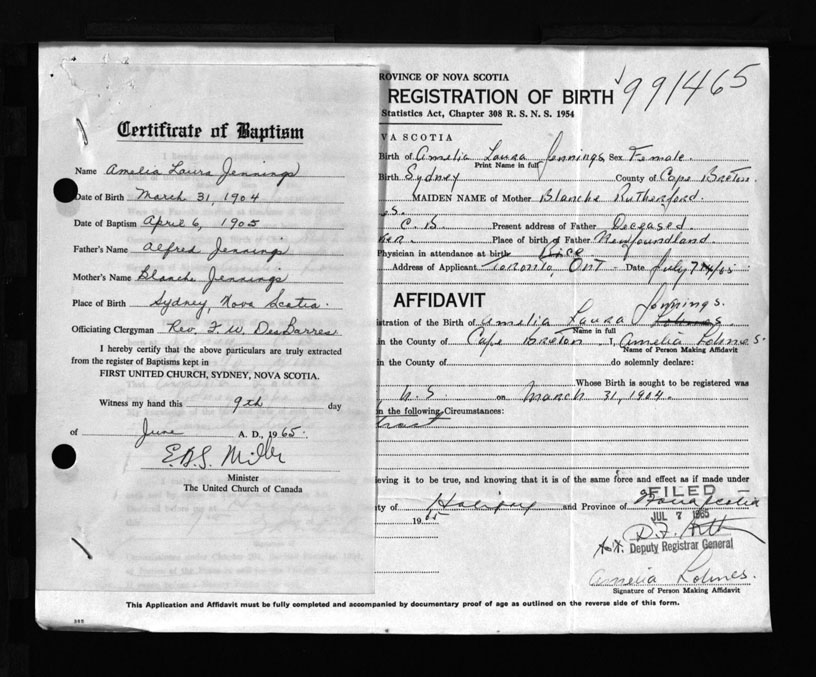 Certificate of Baptism
Name Amelia Laura Jennings
Date of Birth March 31, 1904
Date of Baptism April 6, 1905
Father's Name Alfred Jennings
Mother's Name Blanche Jennings
Place of Birth Sydney, Nova Scotia.
Officiating Clergyman Rev. F. W. DesBarres
I hereby certify that the above particulars are truly extracted
from the register of Baptisms kept in
FIRST UNITED CHURCH, SYDNEY, NOVA SCOTIA.
Witness my hand this 9th day
of June A. D., 1965.
E. B. S. Miller
Minister
The United Church of Canada
ROVINCE OF NOVA SCOTIA
991465
REGISTRATION OF BIRTH
Statistics Act, Chapter 308 R. S. N. S. 1954
VA SCOTIA
Birth of Amelia Laura Jennings Sex Female.
Print Name in full
Birth Sydney County of Cape Breton
MAIDEN NAME of Mother Blanche Rutherford.
C. B. Present address of Father Deceased.
Place of birth of Father Newfoundland.
Physician in attendance at birth Rice
Address of Applicant Toronto, Ont Date July
AFFIDAVIT
Jennings.
istration of the Birth of Amelia Laura Lohnes
Name in full
in the County of Cape Breton I, Amelia Lohnes
Name of Person Making Affidavit
in the County of do solemnly declare:
N. S. on March 31, 1904. Whose Birth is sought to be registered was
in the following Circumstances:
ieving it to be true, and knowing that it is of the same force and effect as if made under
ty of Halifax and Province of Nova Scotia
FILED
1965
JUL 7 1965
Deputy Registrar General
Amelia Lohnes.
Signature of Person Making Affidavit
This Application and Affidavit must be fully completed and accompanied by documentary proof of age as outlined on the reverse side of this form.